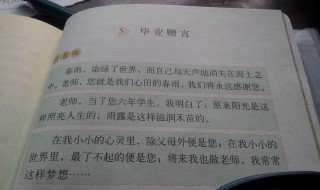 5 毕业赠言
老师
春雨,染绿了世界,而自己却无声地消失在泥土之
中。老师,您就是我们心田的春雨,我们将永远感谢您。
老师,当了您六年学生,我明白了:原来阳光是这
样照亮人生的,雨露是这样滋润禾苗的。
在我小小的心灵里,除父母外便是您;在我小小的
世界里,最了不起的便是您;将来我也做老师,我常常
这样梦想……